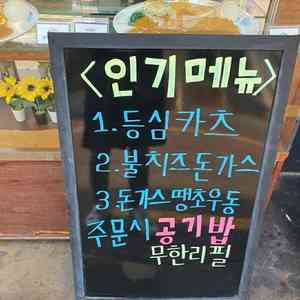 <인기메뉴>
1. 등심카츠
2. 불치즈돈가스
3 돈가스땡초우동
주문시 공기밥
무한리필